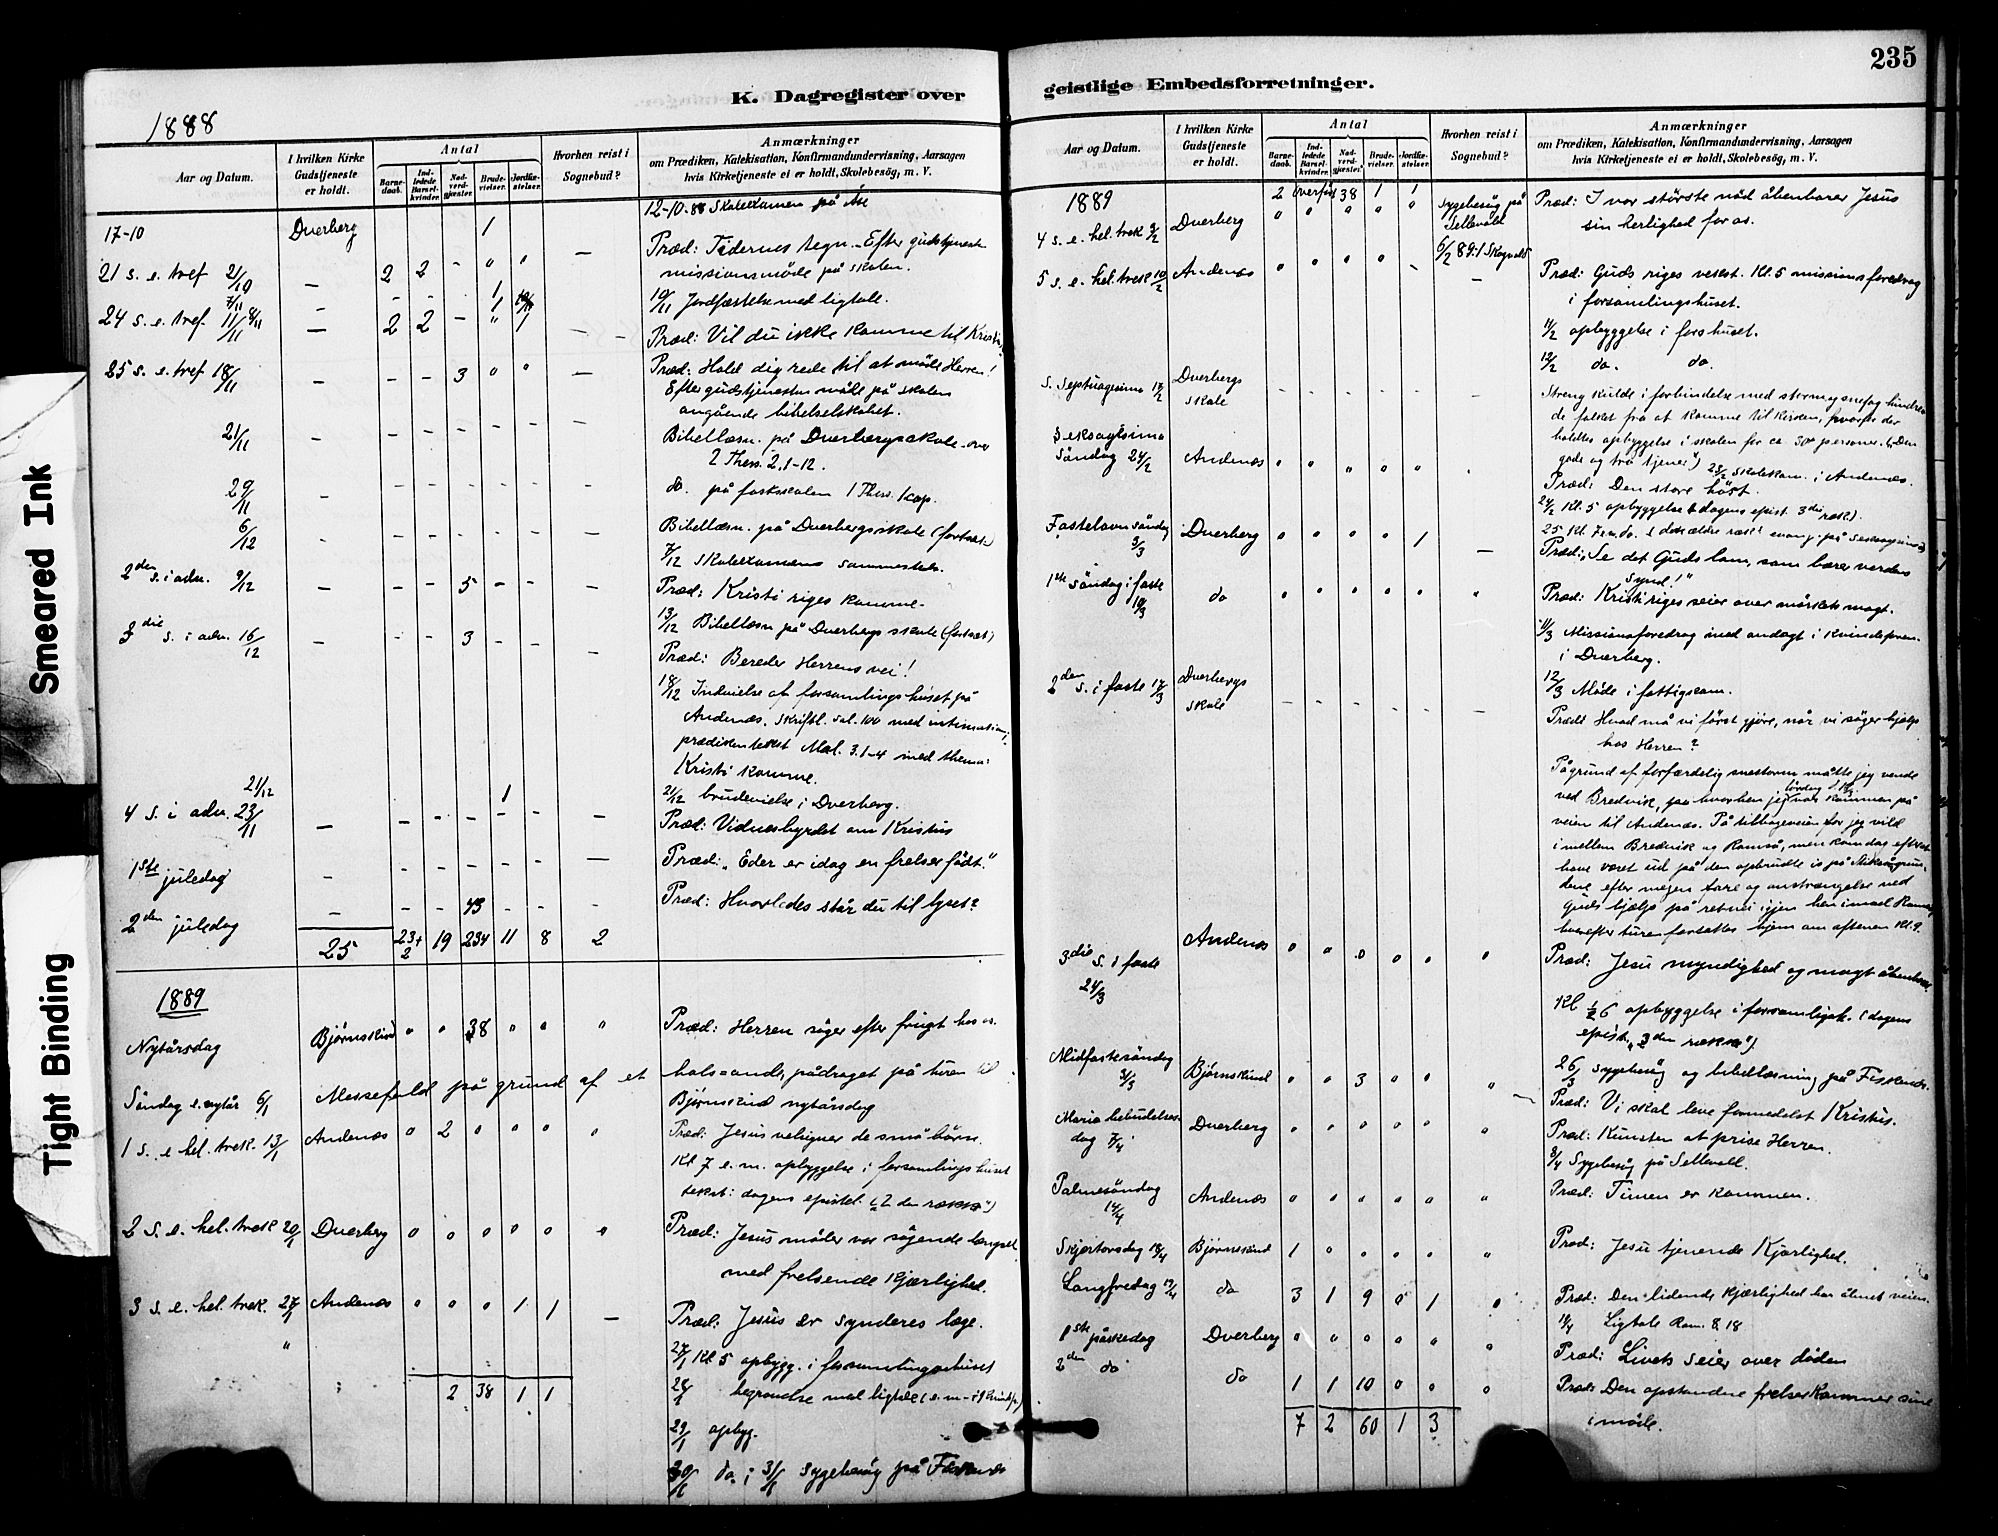 Smeared Ink
Tight Binding
235
K. Dagregister over
geistlige Embedsforretninger.
1888
Aar og Datum.
I hvilken Kirke Gudstjeneste er holdt.
Antal
Barnedaab.
Indledede Barselkvinder.
Nadverdgjæster.
Brudevielser.
Jordfæstelser.
Hvorhen reist i Sognebud?
Anmærkninger
om Prædiken, Katekisation, Konfirmandundervisning, Aarsagen
hvis Kirketjeneste ei er holdt, Skolebesøg, m. V.
12-10-88 Skoleexamen på Åse
17-10 Dverberg 1
21 s. e. tref 21/10 — 2 2 - " " — Præd: Tidernes tegn. Efter gudstjeneste
missionsmøde på skolen.
7/11 - - - 1
8/11 1 10/11 10/11 Jordfæstelse med ligtale.
24 s. e. tref. 11/11 — 2 2 - " 1 - Præd: Vil du ikke komme til Kristus
25 s. e. tref 18/11 - - - 3 " " — Præd: Hold dig rede til at møde Herren!
Efter gudstjenesten måde på skolen
angående bibelselskabet.
21/11 - - - - - - - Bibellæsn. på Dverbergs skole over
2 Thess. 2, 1-12.
29/11 - - - - - - - do. på fastskolen 1 Thess. 1 cap.
6/12 - - - - - - - Bibellæsn. på Dverbergs skole (fortsat)
7/12 Skoleexamens sammesteds.
2den s. i adv. 9/12 — - - 5 - - — Præd: Kristi riges komme.
13/12 Bibellæsn på Dverbergs skole (fortsat)
3die s. i adv. 16/12 — - - 3 - - — Præd: Bereder Herrens vei!
18/12 Indvielse af forsamlingshuset på
Andenæs. Skriftl. sal. 100 med intimation;
prædiken tekst Mal. 3.1-4 med thema:
Kristi komme.
21/12 1 21/12 brudevielse i Dverberg.
4 s. i adv. 23/11 — - - - - - — Præd: Vidnesbyrdet om Kristus
1ste juledag - - - - - - — Præd: "Eder er idag en frelser født."
2den juledag — - - 43 - - - Præd: Hvorledes står du til lyset?
25 23+2 19 234 11 8 2
1889
Nytårsdag Bjørnskind " " 38 " " " Præd: Herren søger efter frugt hos os.
Søndag e. nytår 6/1 Messefald på grund af et halsonde, pådraget på turen til
Bjørnskind nytårsdag
1 s. e hel. trek. 13/1 Andenæs " 2 " " " " Præd: Jesus velsigner de små børn.
Kl 7 e. m. opbyggelse i forsamlingshuset
tekst: dagens epistel (2 den række)
2 s. e. hel. trek 20/1 Dverberg " " " " " " Præd: Jesus møder vor søgende længsel
med frelsende kjærlighed.
3 s. e. hel. trek. 27/1 Andenæs " " " 1 1 — Præd: Jesus er synderes læge.
27/1 Kl. 5 opbygg. i forsamlingshuset
28/1 begravelse med ligtale
2 38 1 1
29/1 opbyg.
30/1 do. ; 31/1 Sygebesøg på
Aar og Datum.
I hvilken Kirke Gudstjeneste er holdt.
Antal
Barnedaab.
Indledede Barselkvinder.
Nadverdgjæster.
Brudevielser.
Jordfæstelser.
Hvorhen reist i Sognebud?
Anmærkninger
om Prædiken, Katekisation, Konfirmandundervisning, Aarsagen
hvis Kirketjeneste ei er holdt, Skolebesøg, m. V.
1889 2 overført 38 1 1
4 s. e. hel. trek 3/2 Dverberg " " " " " Sygebesøg på Sellevold Præd: I vor største nød åbenbarer Jesus
sin herlighed for os.
6/2 89: i Skogvold
5 s. e. hel. trek 10/2 Andenæs " " " " - — Præd: Guds riges vekst. Kl. 5 missionsforedrag
i forsamlingshuset.
11/2 opbyggelse i forshuset.
12/2 do. do.
S. Septuagesima 17/2 Dverbergs skole - - - - - - Streng kulde i forbindelse med storm og snefog hindre-
de folket fra at komme til kirken, hvorfor der
holdtes opbyggelse i skolen for ca. 30 personer. ("Den
gode og tro tjener") 23/2 Skolekom. i Andenæs.
Seksagesima Søndag 24/2 Andenæs " " " " " Præd: Den store høst.
24/2 Kl. 5 opbyggelse dagens epist. 3die ræk).
25. Kl. 7 em. do.
Fastelavn søndag 3/3 Dverberg " " " " 1 — Præd: "Se det Guds lam, som bærer verdens
synd!"
1ste Søndag i faste 10/3 do " " " " " " Præd: Kristi riges seier over mørkets magt.
11/3 Missionsforedrag med andagt i kvindeforen.
i Dverberg.
12/3 Møde i fattigcom.
2den s. i faste 17/3 Dverbergs skole - - - - - — Præd: Hvad må vi først gjøre, når vi søger hjælp
hos Herren?
På grund af forfærdelig snestorm måtte jeg vende
ved Bredvik, paa hvorhen jeg lørdag var kommen på
veien til Andenæs. På tilbageveien for jeg vild
imellem Bredvik og Ramså, men kom dag efter at
have været ud på den opbrudte is på
dene efter megen fare og anstrængelse ved
Guds hjælp på ret vei igjen hen imod Ramså
hvorefter turen fortsattes hjem om aftenen Kl. 9.
3die s. i faste 24/3 Andenæs " " " " " " Præd: Jesu myndighed og magt åbenbares.
Kl ½6 opbyggelse i forsamligsh. (dagens
epist. "3den række").
26/3 Sygebesøg og bibellæsning på Fiskenes.
Midfastesøndag 31/3 Bjørnskind " " 3 " " " Præd: Vi skal leve formedelst Kristus.
Maria bebudelsesdag 7/4 Dverberg " " " " " " Præd: Kunsten at prise Herren.
8/4 Sygebesøg på Sellevold.
Palmesøndag 14/4 Andenæs " " " " " " Præd: Timen er kommen.
Skjærtorsdag 18/4 Bjørnskind 1 " " " " " Præd: Jesu tjenende Kjærlighed.
Langfredag 19/4 do 3 1 9 " 1 " Præd: Den lidende kjærlighed har åbnet veien.
19/4 Ligtale Rom. 8. 18
1ste påskedag Dverberg " " " " " " Præd: Livets seier over døden
2den do do 1 1 10 " " " Præd: Den opstandne frelser kommer sine
i møde.
7 2 60 1 3